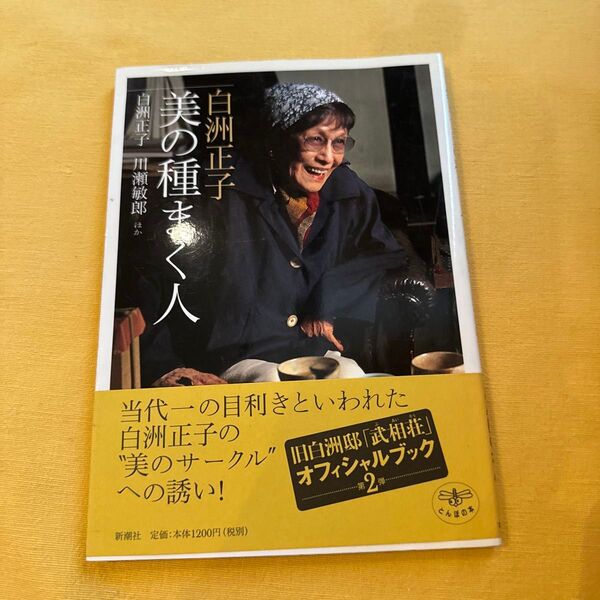 白洲正子
美の種まく人
白洲正子 川瀬敏郎 ほか
当代一の目利きといわれた
白洲正子の
“美のサークル”
への誘い!
旧白洲邸「武相荘」
オフィシャルブック
第2弾
新潮社 定価:本体1200円(税別)
とんぼの本